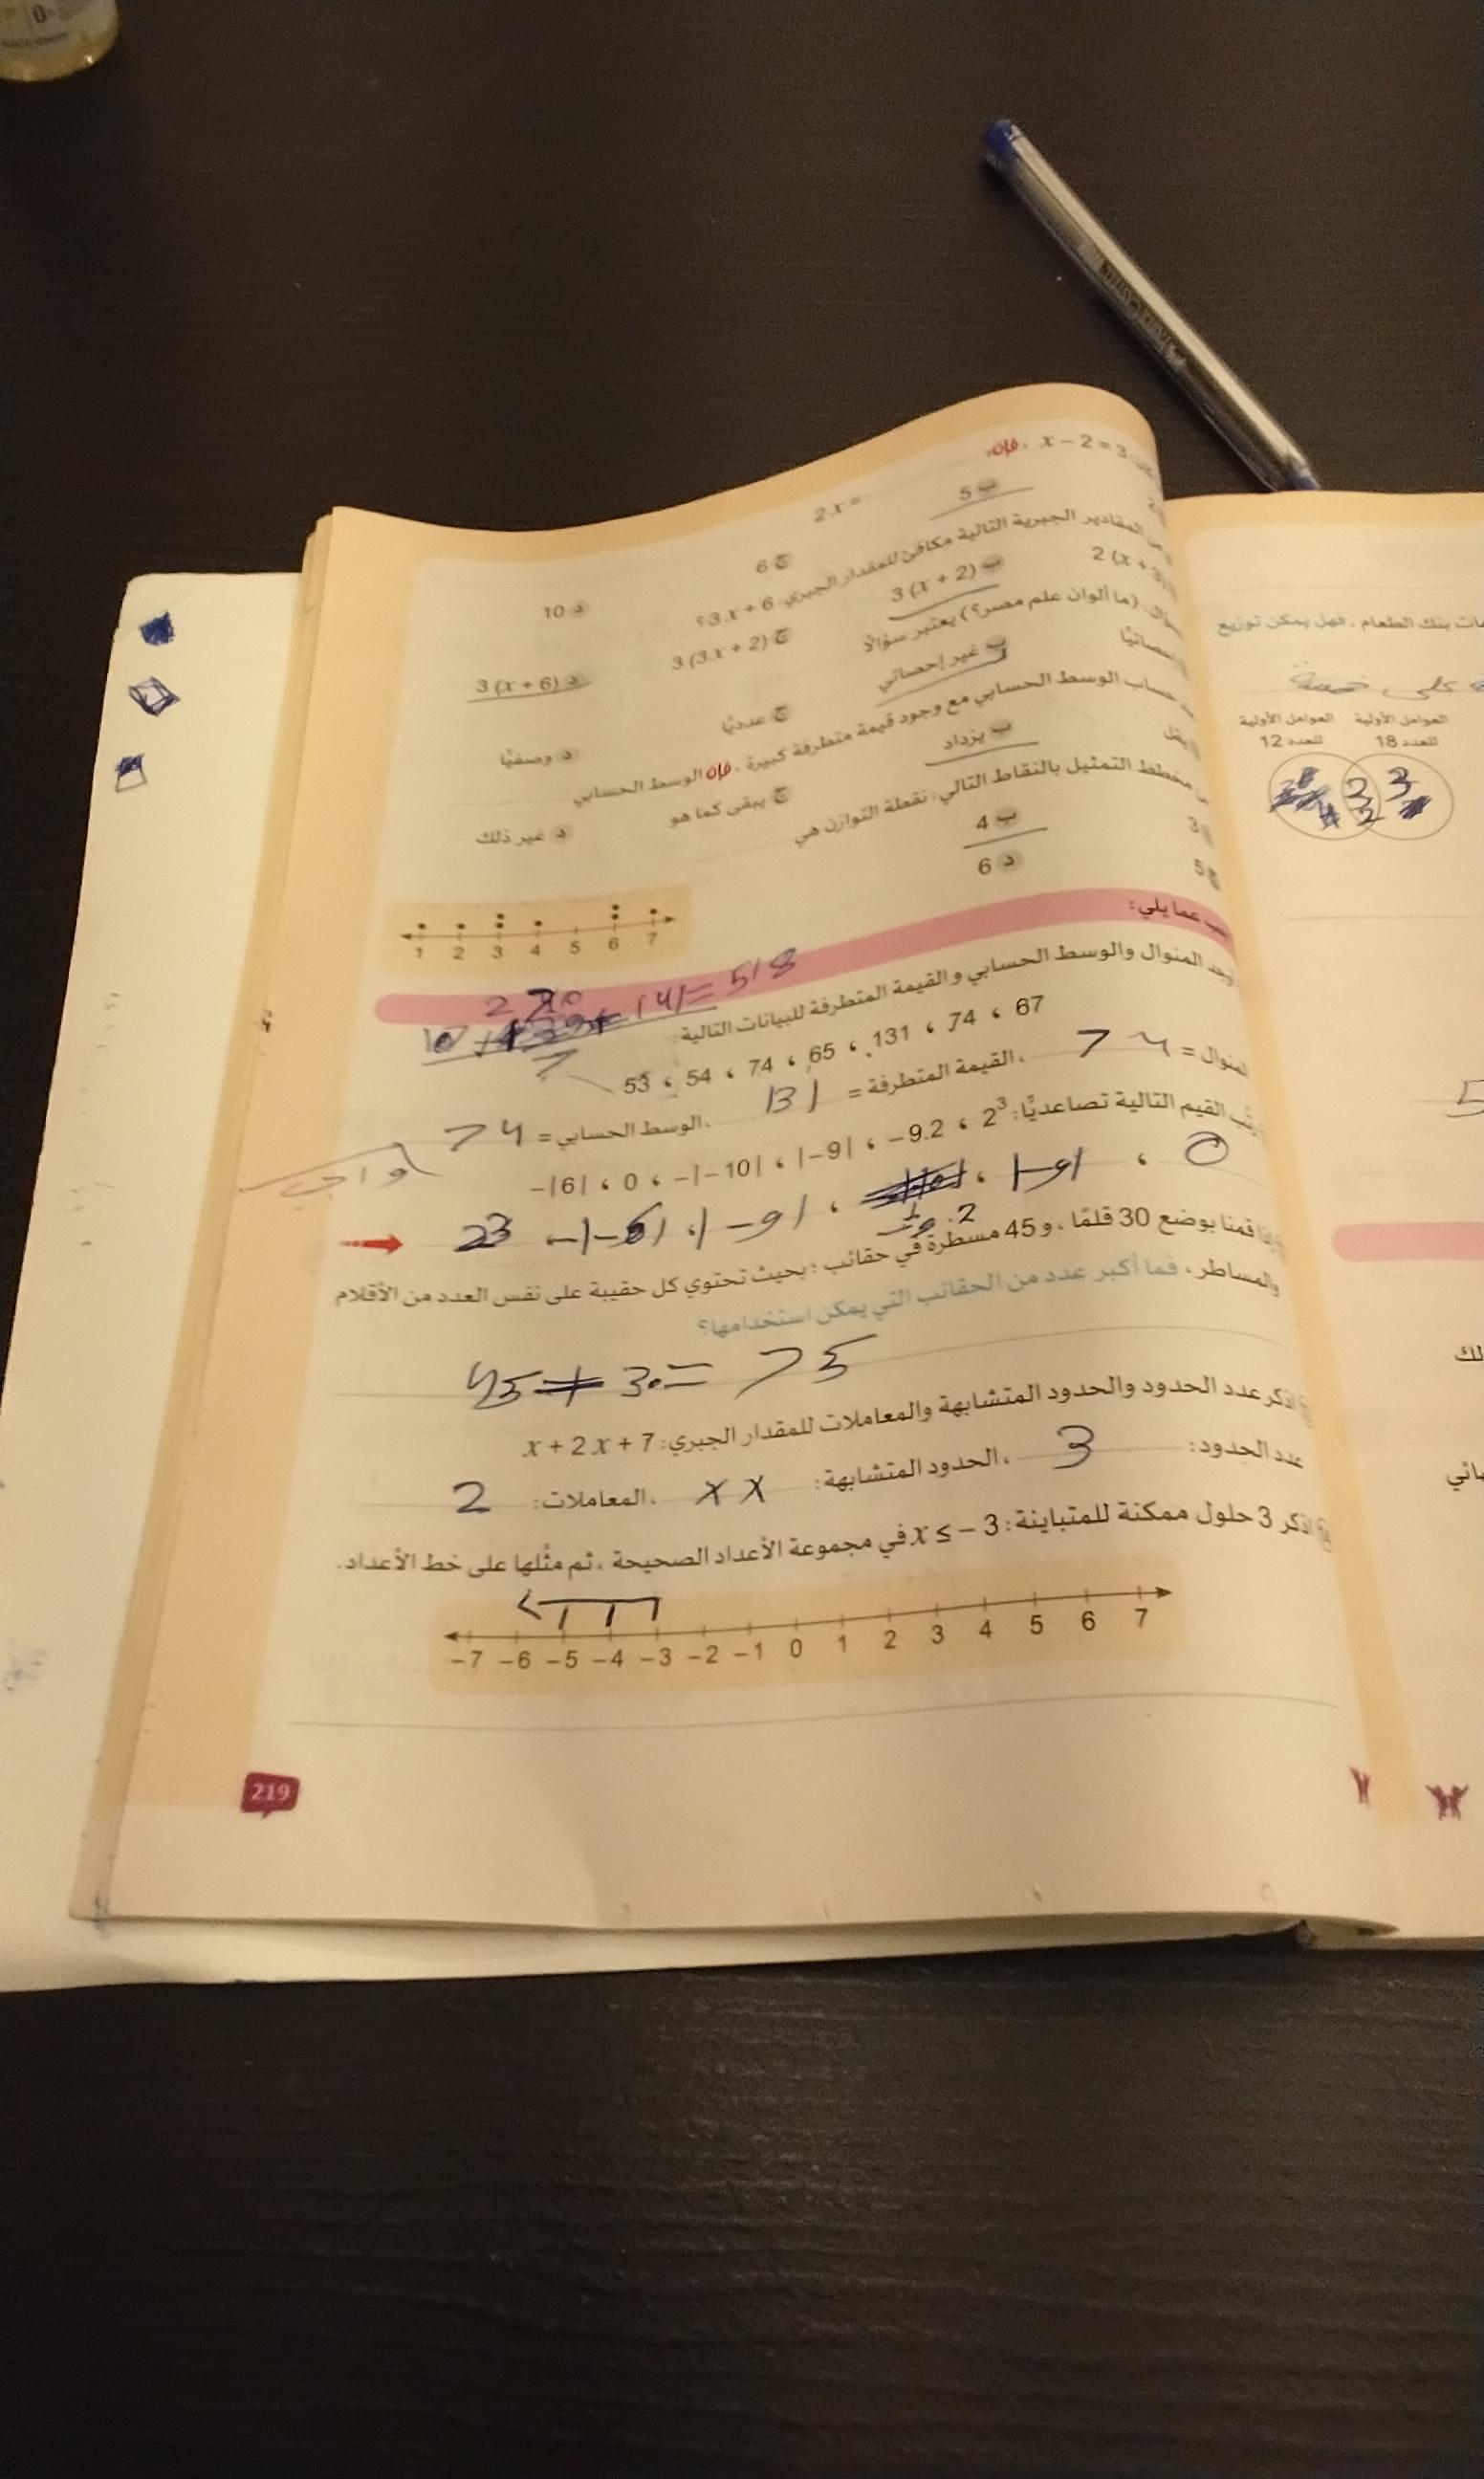 x – 2 = 3 ، فإن:
2 x =
ب 5
ج 6
د 10
من المقادير الجبرية التالية مكافئ للمقدار الجبري: 3 x + 6 ؟
2 (x + 3)
ب 3 (x + 2)
ج 3 (3 x + 2)
د 3 (x + 6)
(ما ألوان علم مصر؟) يعتبر سؤالًا
إحصائيًّا
ب غير إحصائي
ج عدديًّا
د وصفيًّا
حساب الوسط الحسابي مع وجود قيمة متطرفة كبيرة ، فإن الوسط الحسابي
يقل
ب يزداد
ج يبقى كما هو
د غير ذلك
مخطط التمثيل بالنقاط التالي: نقطة التوازن هي
3
ب 4
5
د 6
1 2 3 4 5 6 7
عما يلي:
المنوال والوسط الحسابي والقيمة المتطرفة للبيانات التالية:
= 518
7
53 ، 54 ، 74 ، 65 ، 131 ، 74 ، 67
المنوال = 74 ، القيمة المتطرفة = 131 ، الوسط الحسابي = 74
القيم التالية تصاعديًّا: 2³ ، –9.2 ، |–9| ، –|–10| ، 0 ، –|6|
0 ، |-9|
2³
قمنا بوضع 30 قلمًا ، و 45 مسطرة في حقائب ؛ بحيث تحتوي كل حقيبة على نفس العدد من الأقلام
والمساطر ، فما أكبر عدد من الحقائب التي يمكن استخدامها؟
45 + 30 = 75
اذكر عدد الحدود والحدود المتشابهة والمعاملات للمقدار الجبري: x + 2 x + 7
عدد الحدود: 3 ، الحدود المتشابهة: x x ، المعاملات: 2
اذكر 3 حلول ممكنة للمتباينة: x ≤ – 3 في مجموعة الأعداد الصحيحة ، ثم مثّلها على خط الأعداد.
–7 –6 –5 –4 –3 –2 –1 0 1 2 3 4 5 6 7
219
بنك الطعام ، فهل يمكن توزيع
على
العوامل الأولية للعدد 18
العوامل الأولية للعدد 12
3
3
2
5